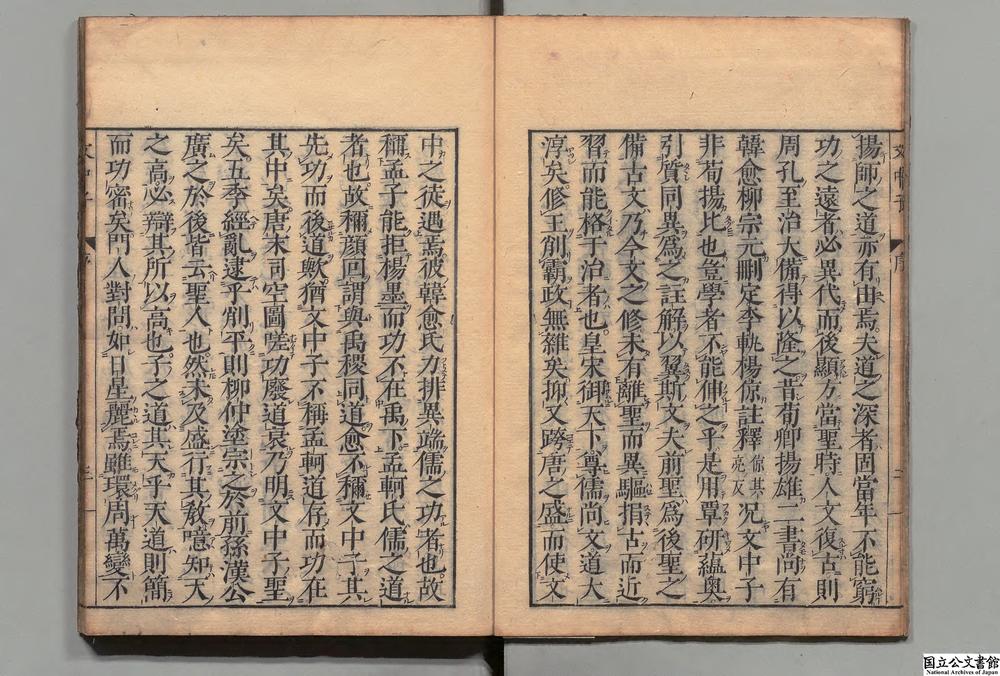 揚師之道亦有由焉夫道之深者固當年不能窮
功之遠者必異代而後顯方當聖時人文復古則
周孔至治大備得以隆之昔荀卿揚雄二書尚有
韓愈柳宗元刪定李軌楊倞註釋倞其亮反況文中子
非荀揚比也豈學者不能伸之乎是用覃研蘊奧
引質同異爲之註解以翼斯文夫前聖爲後聖之
備古文乃今文之修未有離聖而異驅捐古而近
習而能格于治者也皇宋御天下尊儒尚文道大
淳矣修王削霸政無雜矣抑又跨唐之盛而使文
中之徒遇焉彼韓愈氏力排異端儒之功者也故
稱孟子能拒楊墨而功不在禹下孟軻氏儒之道
者也故稱顏回謂與禹稷同道愈不稱文中子其
先功而後道歟猶文中子不稱孟軻道存而功在
其中矣唐末司空圖嗟功廢道衰乃明文中子聖
矣五季經亂逮乎削平則柳仲塗宗之於前孫漢公
廣之於後皆云聖人也然未及盛行其教噫知天
之高必辯其所以高也子之道其天乎天道則簡
而功密矣門人對問如日星麗焉雖環周萬變不
国立公文書館
National Archives of Japan